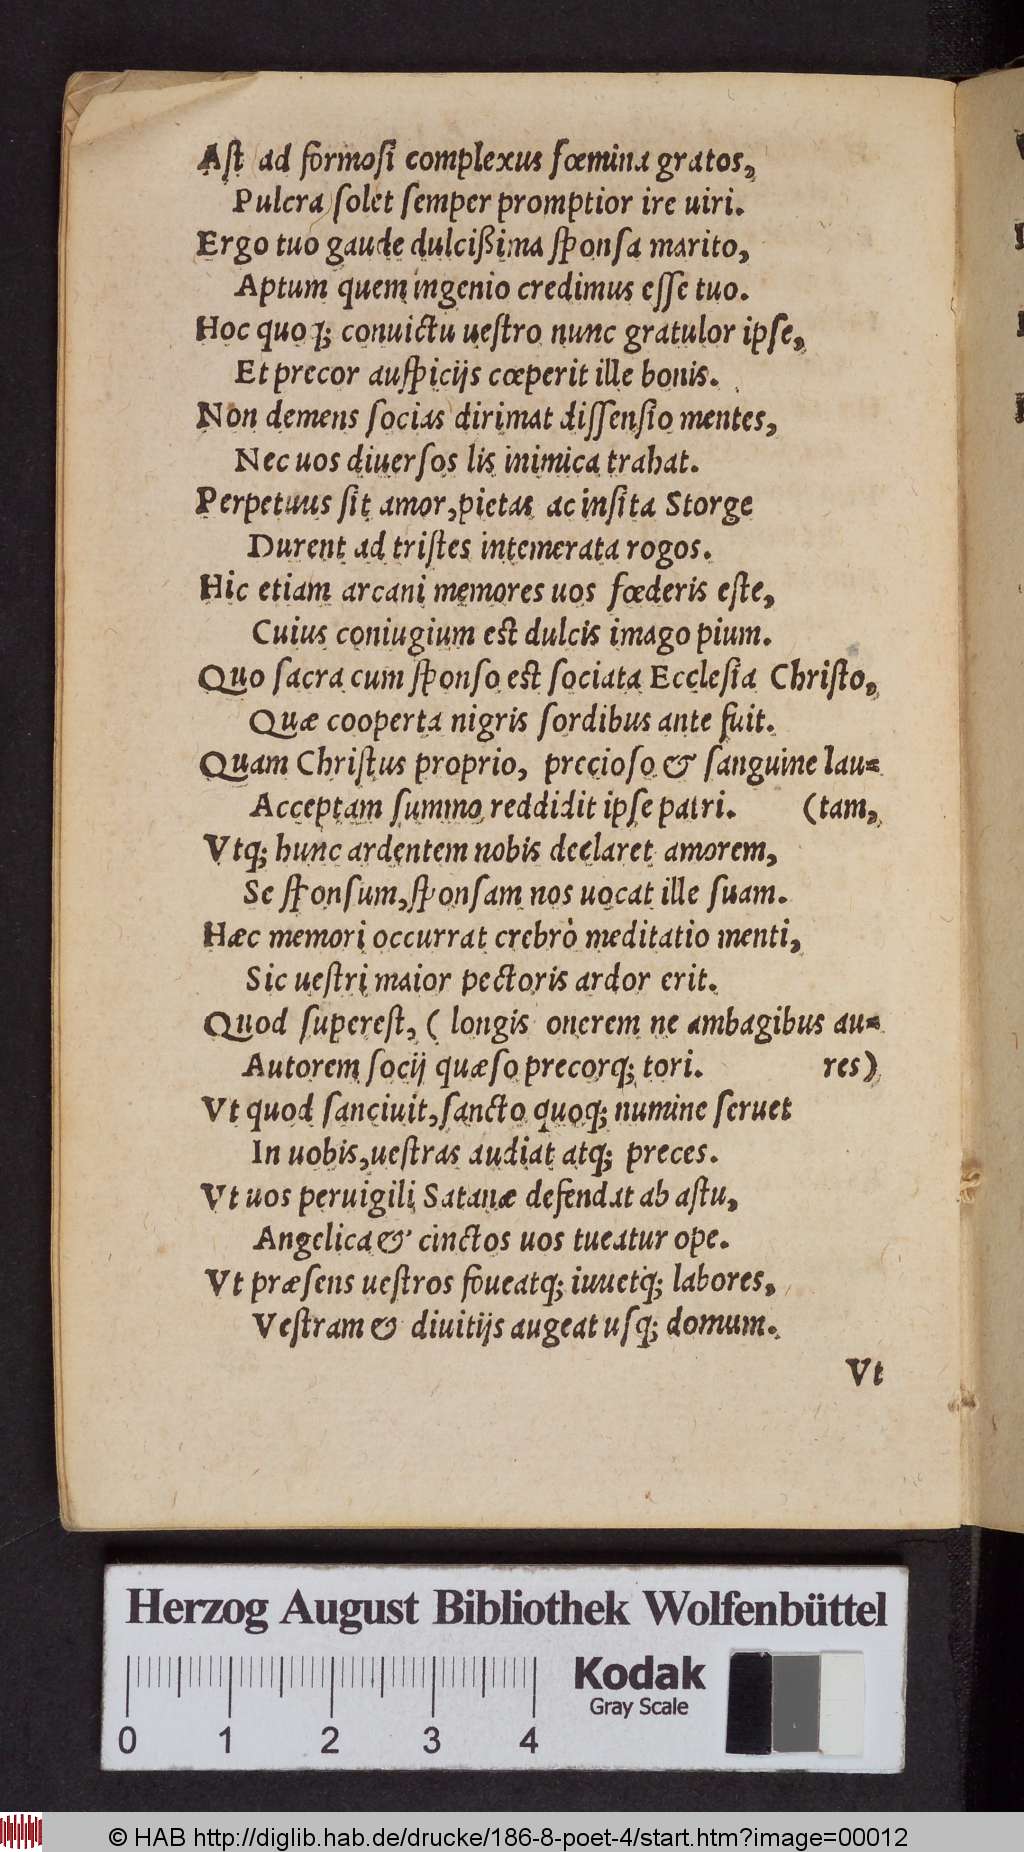 Aſt ad formoſi complexus fœmina gratos,
Pulcra ſolet ſemper promptior ire uiri.
Ergo tuo gaude dulcißima ſponſa marito,
Aptum quem ingenio credimus eſſe tuo.
Hoc quoq; conuictu ueſtro nunc gratulor ipſe,
Et precor auſpicijs cœperit ille bonis.
Non demens ſocias dirimat diſſenſio mentes,
Nec uos diuerſos lis inimica trahat.
Perpetuus ſit amor, pietas ac inſita Storge
Durent ad triſtes intemerata rogos.
Hic etiam arcani memores uos fœderis eſte,
Cuius coniugium eſt dulcis imago pium.
Quo ſacra cum ſponſo eſt ſociata Eccleſia Chriſto,
Quæ cooperta nigris ſordibus ante fuit.
Quam Chriſtus proprio, precioſo & ſanguine lau=
Acceptam ſummo reddidit ipſe patri. (tam,
Vtq; hunc ardentem nobis declaret amorem,
Se ſponſum, ſponſam nos uocat ille ſuam.
Hæc memori occurrat crebrò meditatio menti,
Sic ueſtri maior pectoris ardor erit.
Quod ſupereſt, ( longis onerem ne ambagibus au=
Autorem ſocij quæſo precorq; tori. res)
Vt quod ſanciuit, ſancto quoq; numine ſeruet
In uobis, ueſtras audiat atq; preces.
Vt uos peruigili Satanæ defendat ab aſtu,
Angelica & cinctos uos tueatur ope.
Vt præſens ueſtros foueatq; iuuetq; labores,
Veſtram & diuitijs augeat uſq; domum.
Vt
Herzog August Bibliothek Wolfenbüttel
Kodak
Gray Scale
0 1 2 3 4
© HAB http://diglib.hab.de/drucke/186-8-poet-4/start.htm?image=00012